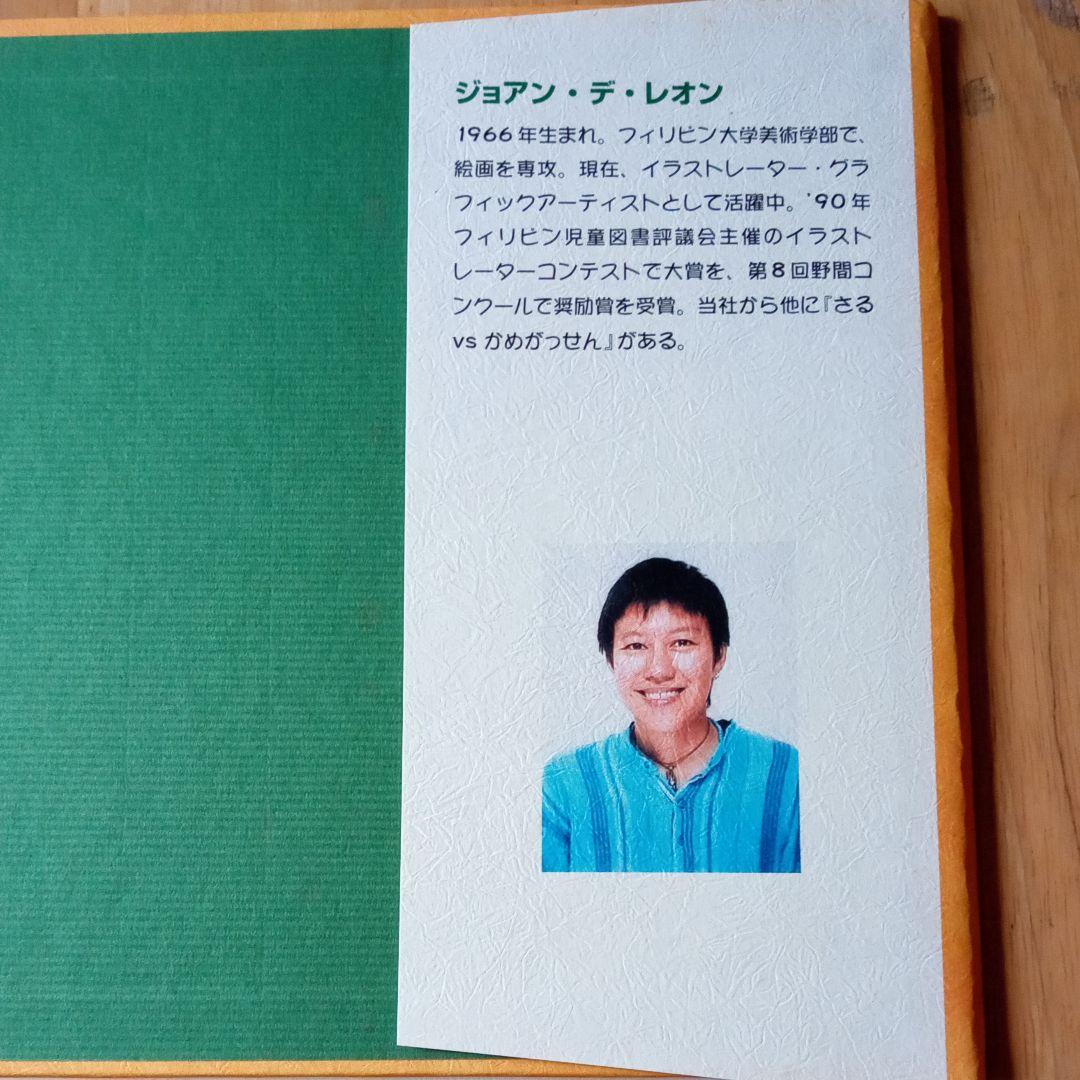 ジョアン・デ・レオン
1966年生まれ。フィリピン大学美術学部で、
絵画を専攻。現在、イラストレーター・グラ
フィックアーティストとして活躍中。'90年
フィリピン児童図書評議会主催のイラスト
レーターコンテストで大賞を、第8回野間コ
ンクールで奨励賞を受賞。当社から他に『さる
vs かめがっせん』がある。